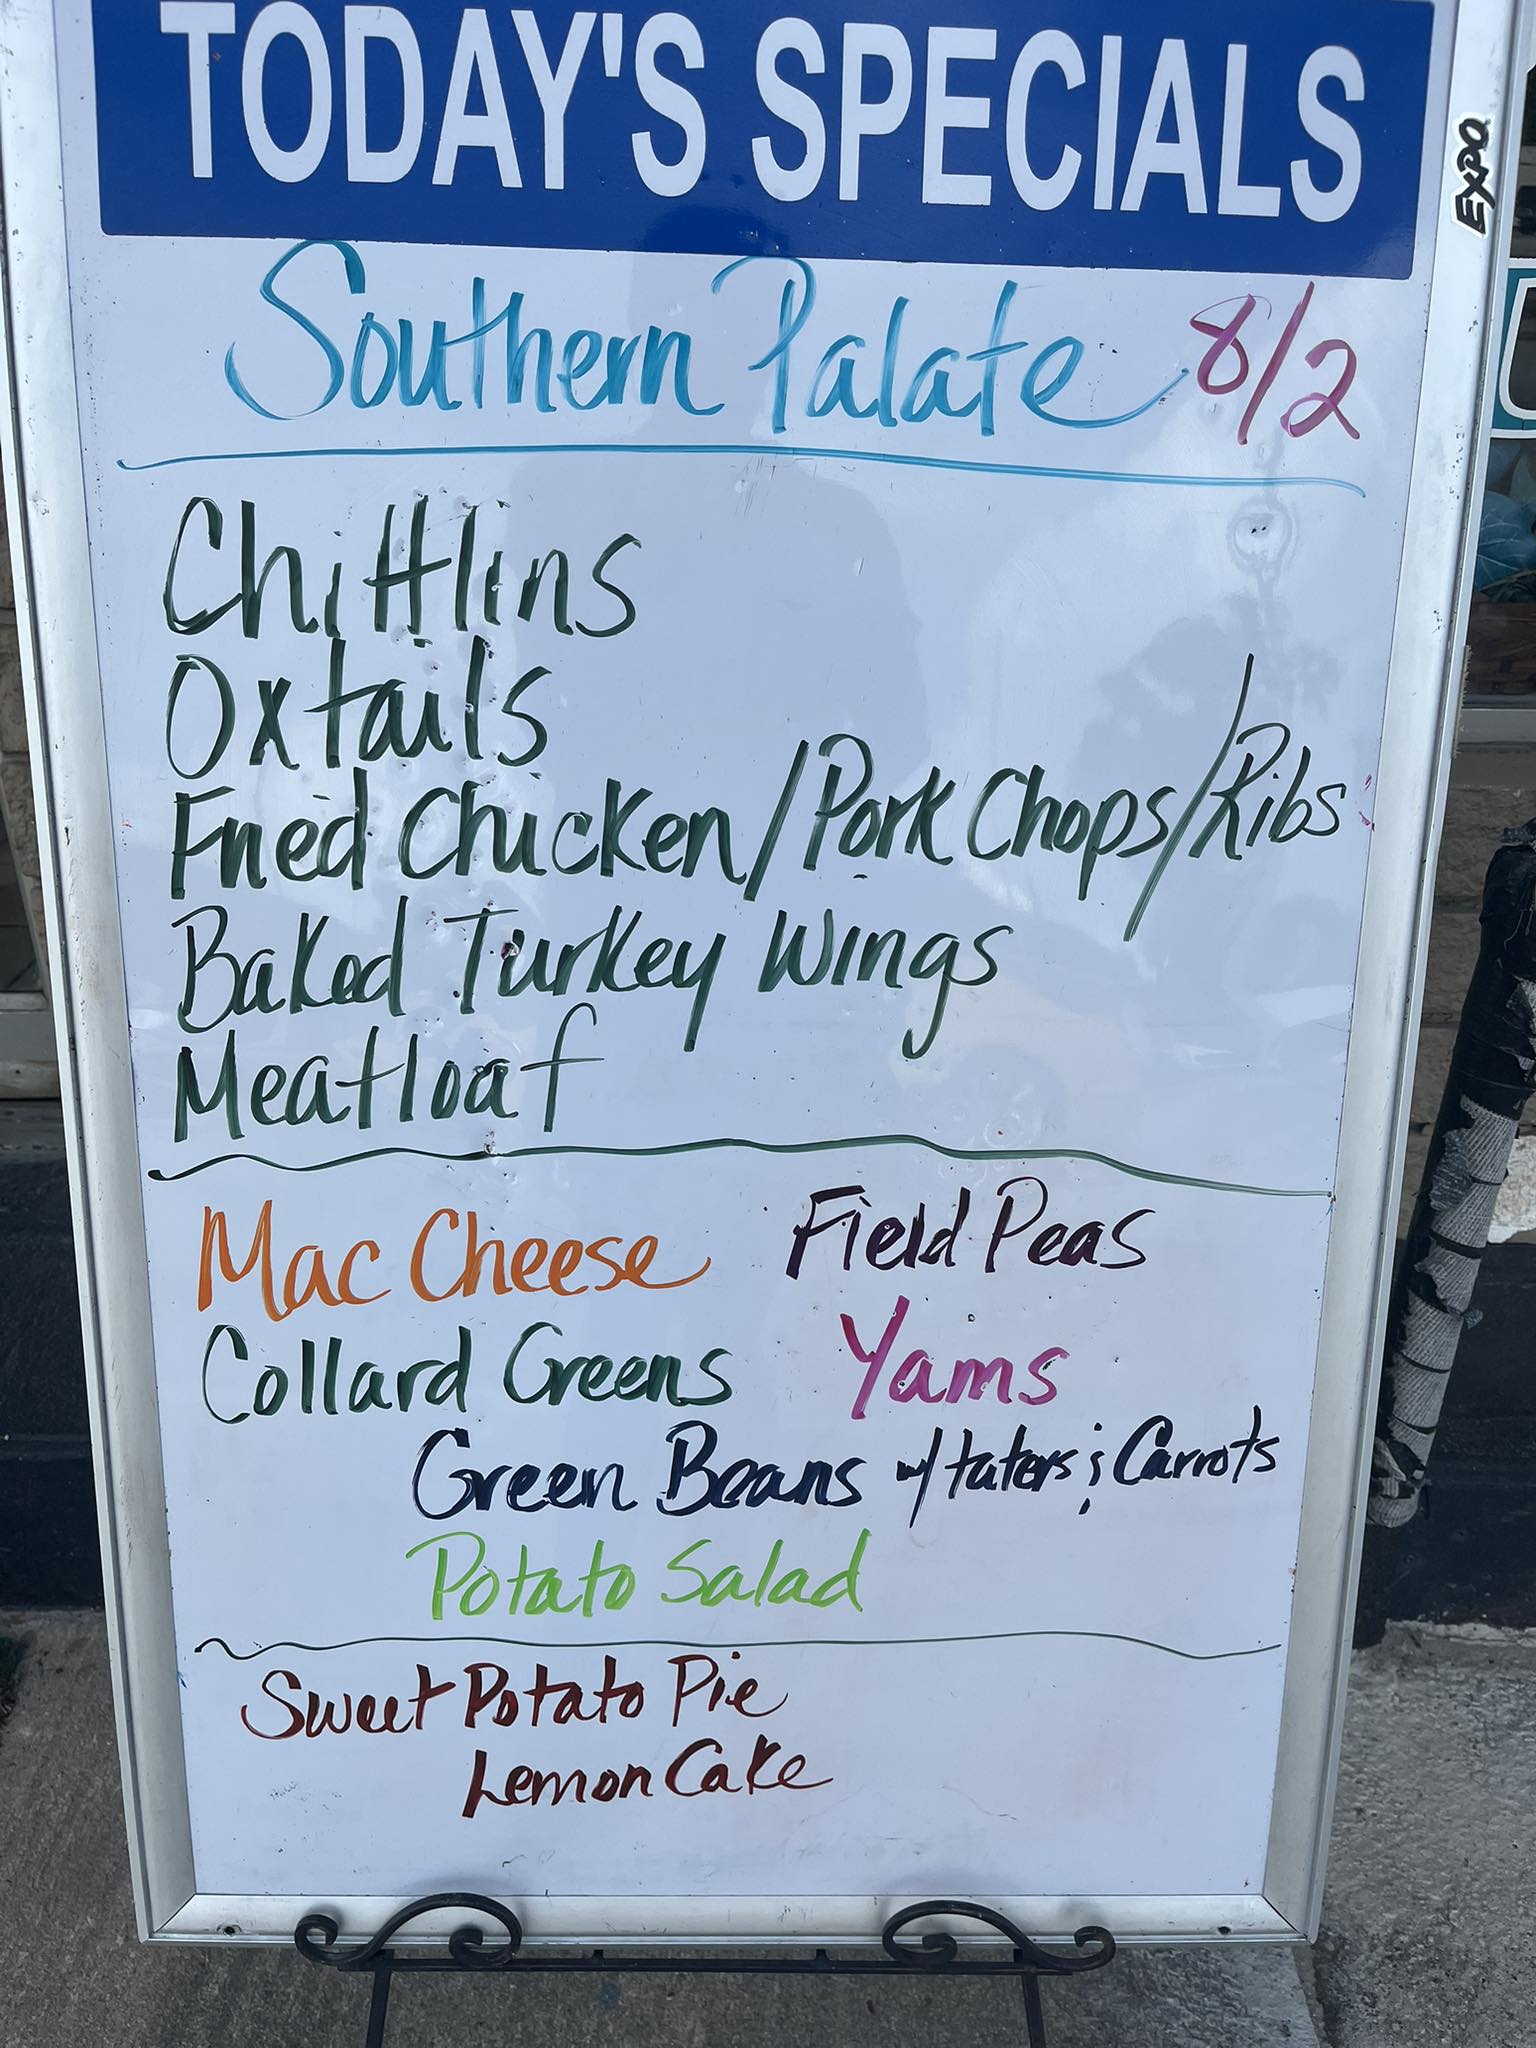 TODAY'S SPECIALS
EXPO
Southern Palate 8/2
Chittlins
Oxtails
Fried Chicken/Pork Chops/Ribs
Baked Turkey Wings
Meatloaf
Mac Cheese Field Peas
Collard Greens Yams
Green Beans w/ taters & Carrots
Potato Salad
Sweet Potato Pie
Lemon Cake